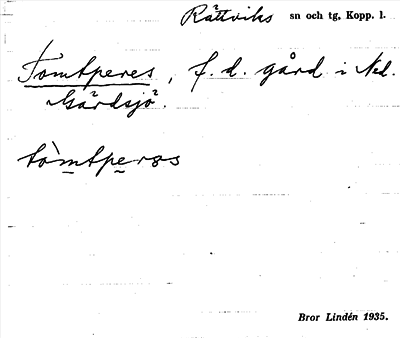 Rättviks sn och tg, Kopp. l.
Tomtperes, f. d. gård i Ned.
Gärdsjö.
tòmtperəs
Bror Lindén 1935.